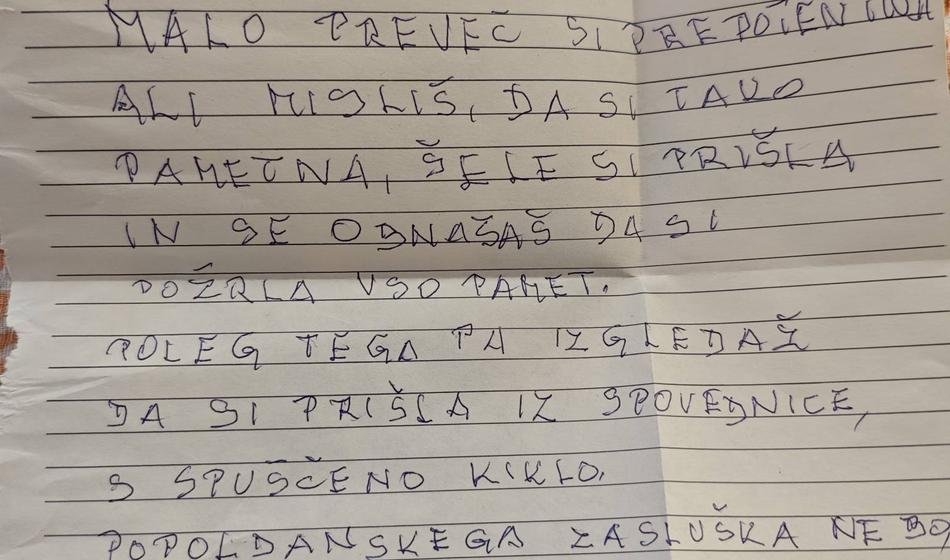 MALO PREVEČ SI PREPOTENTNA
ALI MISLIŠ, DA SI TAKO
PAMETNA, ŠELE SI PRIŠLA
IN SE OBNAŠAŠ DA SI
POŽRLA VSO PAMET.
POLEG TEGA PA IZGLEDAŽ
DA SI PRIŠLA IZ SPOVEDNICE,
S SPUŠČENO KIKLO.
POPOLDANSKEGA ZASLUŠKA NE BO